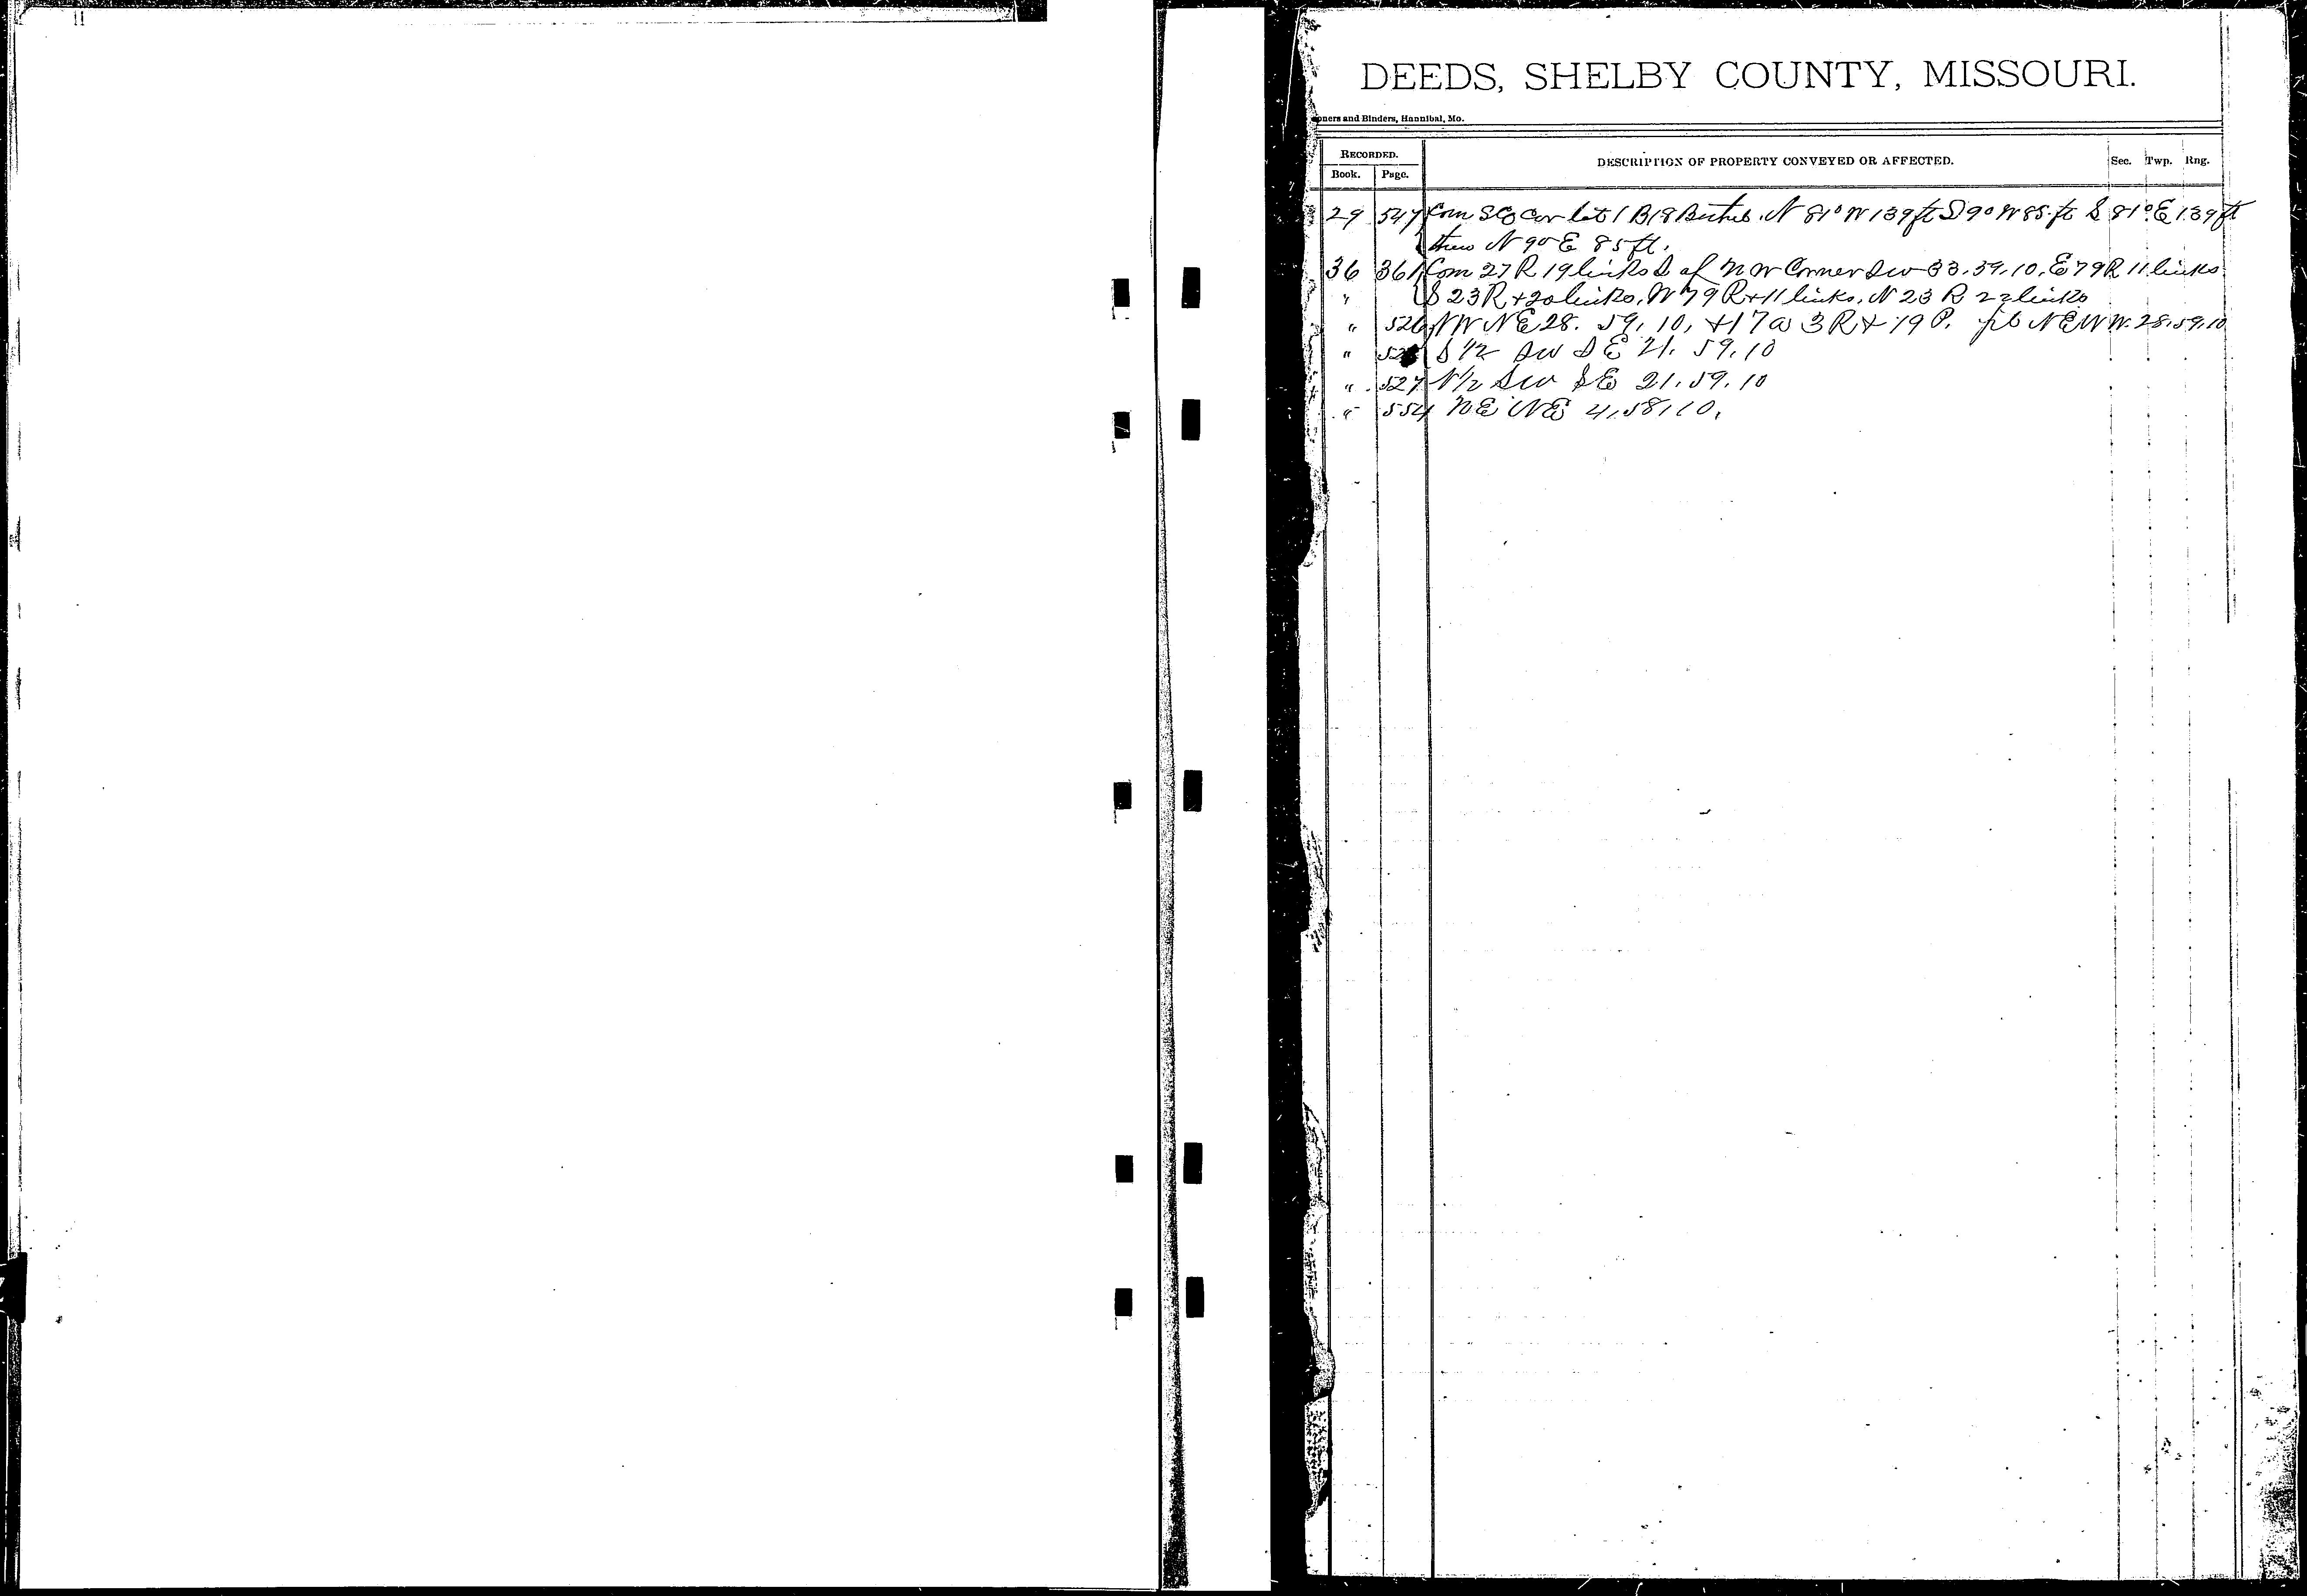 DEEDS, SHELBY COUNTY, MISSOURI.
ners and Binders, Hannibal, Mo.
RECORDED.
Book. Page. DESCRIPTION OF PROPERTY CONVEYED OR AFFECTED. Sec. Twp. Rng.
29 547 Com SE Cor Lot 1 B 18 Bethel. N 81° W 139 ft S 9° W 85 ft S 81° E 139 ft
N 9° E 85 ft.
36 361 Com 27 R 19 links S of N W Corner SW 33.59.10. E 79 R 11 links
" S 23 R + 20 links, W 79 R + 11 links, N 23 R 22 links
" 526 NW NE 28. 59. 10, + 17 a 3 R + 19 P. NE NW. 28.59.10
" S 1/2 SW SE 21. 59. 10
" 527 N 1/2 SW SE 21. 59. 10
" 554 NE NE 4. 58. 10.